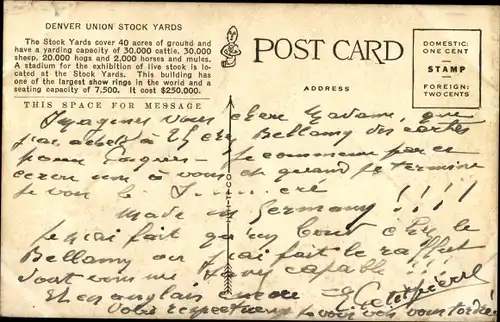 DENVER UNION STOCK YARDS
The Stock Yards cover 40 acres of ground and
have a yarding capacity of 30,000 cattle, 30,000
sheep, 20,000 hogs and 2,000 horses and mules.
A stadium for the exhibition of live stock is lo-
cated at the Stock Yards. This building has
one of the largest show rings in the world and a
seating capacity of 7,500. It cost $250,000.
THIS SPACE FOR MESSAGE
POST CARD
ADDRESS
DOMESTIC:
ONE CENT
STAMP
FOREIGN:
TWO CENTS
Imaginez vous chère Madame, que
j'ai acheté à Bellamy des cartes
pour Pâques - Je commence par ce
à vous et quand je termine
je vois le
Made in Germany !!!!
Je n'ai fait qu'un bond chez le
Bellamy où j'ai fait le raffut
dont vous me savez capable !!!
Et en anglais encore
Votre respectueux
je vous vois vous tordre!